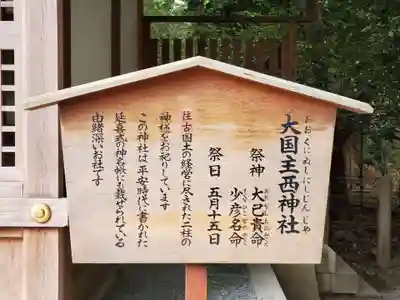 大国主西神社
おおくにぬしにしじんじゃ
祭神　大己貴命
少彦名命
祭日　五月十五日
往古国土の経営に尽された二柱の
神様をお祀りしています
この神社は平安時代に書かれた
延喜式の神名帳にも載せられている
由緒深いお社です